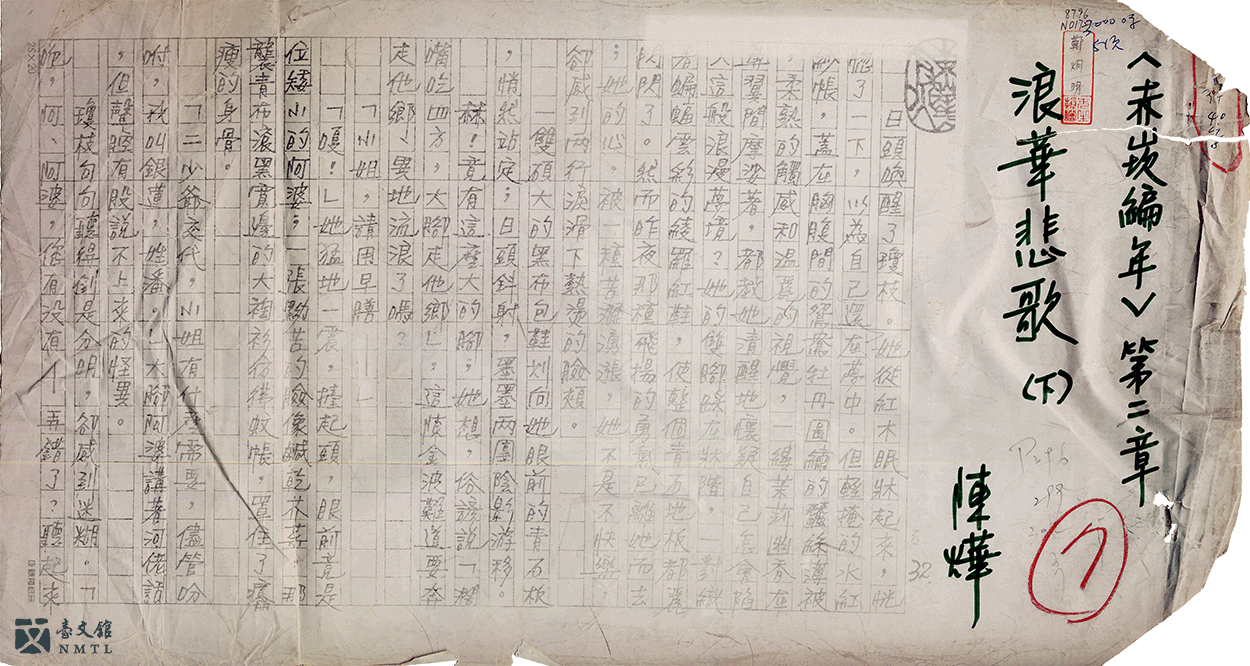 8796
5頁
鄭炯明
〈赤崁編年〉第二章
浪華悲歌(下)
陳燁
32
日頭喚醒了瓊枝。她從紅木眠牀起來,恍
惚了一下,以為自己還在夢中。但輕掩的水紅
紗帳,蓋在胸腹間的鴛鴦牡丹圖繡的蠶絲薄被
,柔熟的觸感和溫麗的視覺,一縷茉莉幽香在
鼻翼間摩娑著,都教她清醒地懷疑自己怎會陷
入這般浪漫夢境?她的雙腳踩在牀階,對織
著蝙蝠雲彩的綾羅紅鞋,使整個青石地板都
閃閃了。然而昨夜那種飛揚的勇氣已離她而去
;她的心,被一種苦澀漲,她不是不快樂,
卻感到兩行淚滑下熱燙的臉頰。
一雙碩大的黑布包鞋划向她眼前的青石板
,悄然站定;日頭斜射,墨墨兩團陰影游移。
!竟有這麼大的腳;她想,俗諺說「闊
嘴吃四方,大腳走他鄉」,這慎金波難道要奔
走他鄉、異地流浪了嗎?
「小姐,請用早膳——」
「嘎!」她猛地一震,擡起頭,眼前竟是
位矮小的阿婆;一張黝苦的臉像鹹乾芥菜,那
襲青布滾黑寬邊的大裪衫彷彿蚊帳,罩住了癟
瘦的身骨。
「二少爺交代,小姐有什麼需要,儘管吩
咐,我叫銀蓮,姓潘。」大腳阿婆講著河佬話
,但聲腔有股說不上來的怪異。
瓊枝句句聽得倒是分明,卻感到迷糊。「
呃,阿、阿婆,你有沒有——弄錯了?聽起來
25×20
臺文館
NMTL